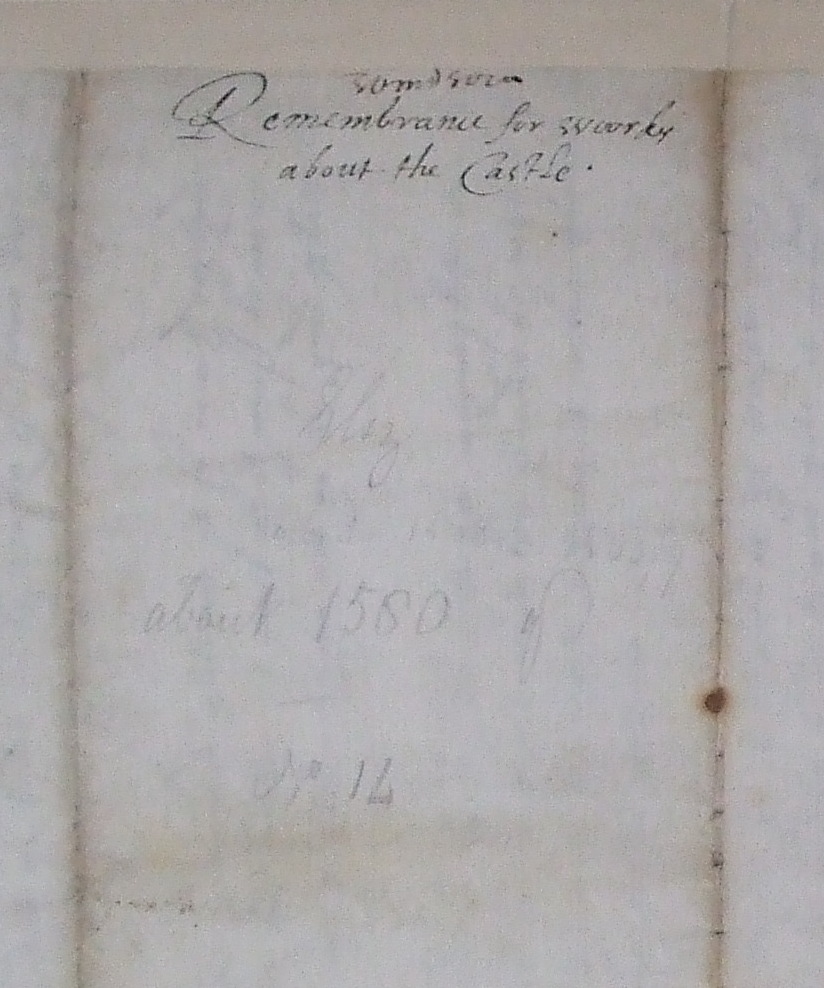 wyndsour
Remembrance for woorks
about the Castle.
Eliz
about 1580
No. 14